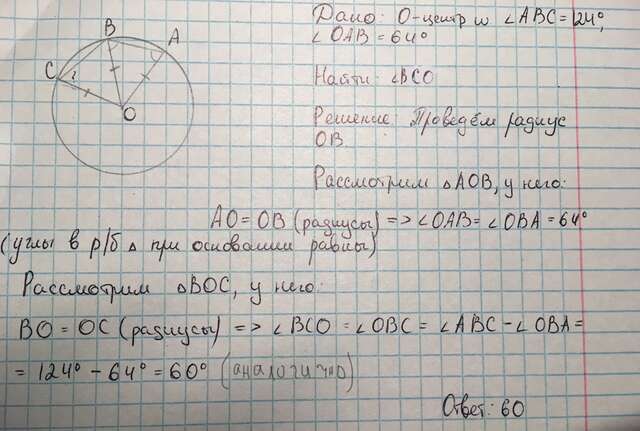 Дано: О-центр ω ∠ABC=124°,
∠OAB=64°
Найти: ∠BCO
Решение: Проведём радиус
OB
Рассмотрим △AOB, у него:
AO=OB (радиусы) => ∠OAB=∠OBA=64°
(углы в р/б △ при основании равны)
Рассмотрим △BOC, у него:
BO=OC (радиусы) => ∠BCO=∠OBC=∠ABC-∠OBA=
=124°-64°=60° (аналогично)
Ответ: 60
B
A
C
O